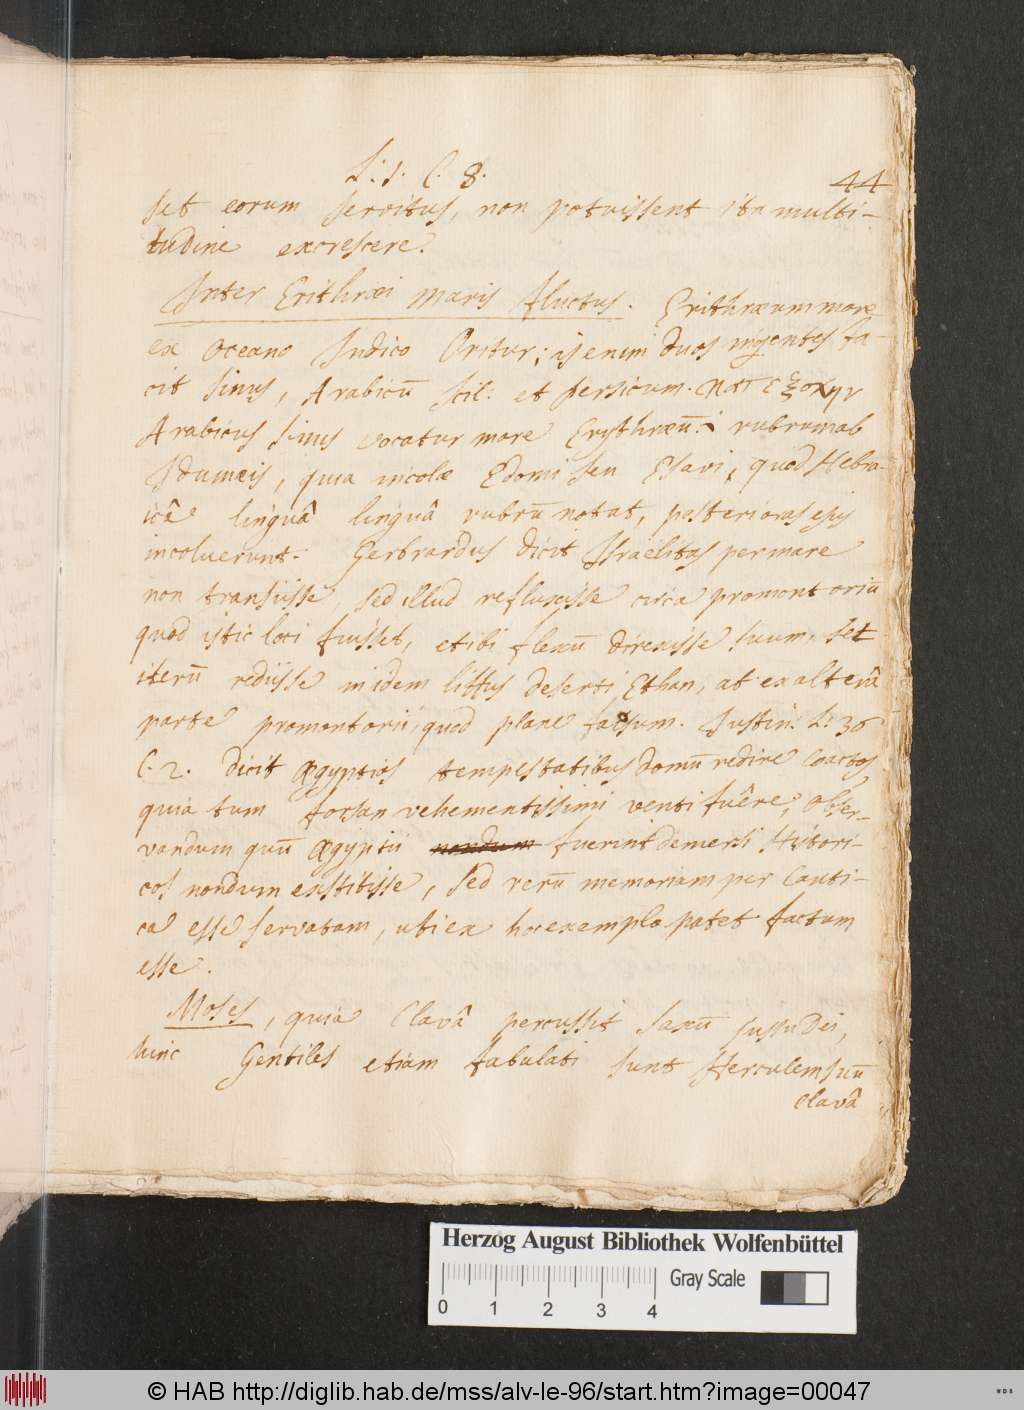 L: 1. C. 8.
44
set eorum servitus, non potuissent ita multi-
tudine excrescere.
Inter Erithræi maris fluctus. Erithræum mare
ex Oceano Indico Oritur; is enim duos ingentes fa-
cit sinus, Arabicū scil: et persicum. κατ εξοχην
Arabicus sinus vocatur mare Erythræū: i rubrum ab
Idumæis, quia incolæ Edomi seu Esavi, quod Hebra-
icâ linguâ linguâ rubrū notat, posterioras ejus
incoluerunt. Gerbrardus dicit Israëlitas per mare
non transiisse, sed illud refluxisse circa promontoriū
quod istic loci fuisset, et ibi flexū direxisse suum, set
iterū rediisse in idem littus deserti Ethan, at ex alterâ
parte promontorii, quod plane falsum. Justin: L: 36
C. 2. dicit Ægyptios tempestatibus domū redire coactos,
quia tum forsan vehementissimi venti fuêre; Obser-
vandum quū Ægyptii nondum fuerint demersi Histori-
cos nondum exstitisse, sed rerū memoriam per Canti-
ca esse servatam, uti ex hoc exemplo patet factum
esse.
Moses, quia Clavâ percussit saxū jussu Dei,
hinc Gentiles etiam fabulati sunt Herculem suū
clavâ
Herzog August Bibliothek Wolfenbüttel
0 1 2 3 4
Gray Scale
© HAB http://diglib.hab.de/mss/alv-le-96/start.htm?image=00047